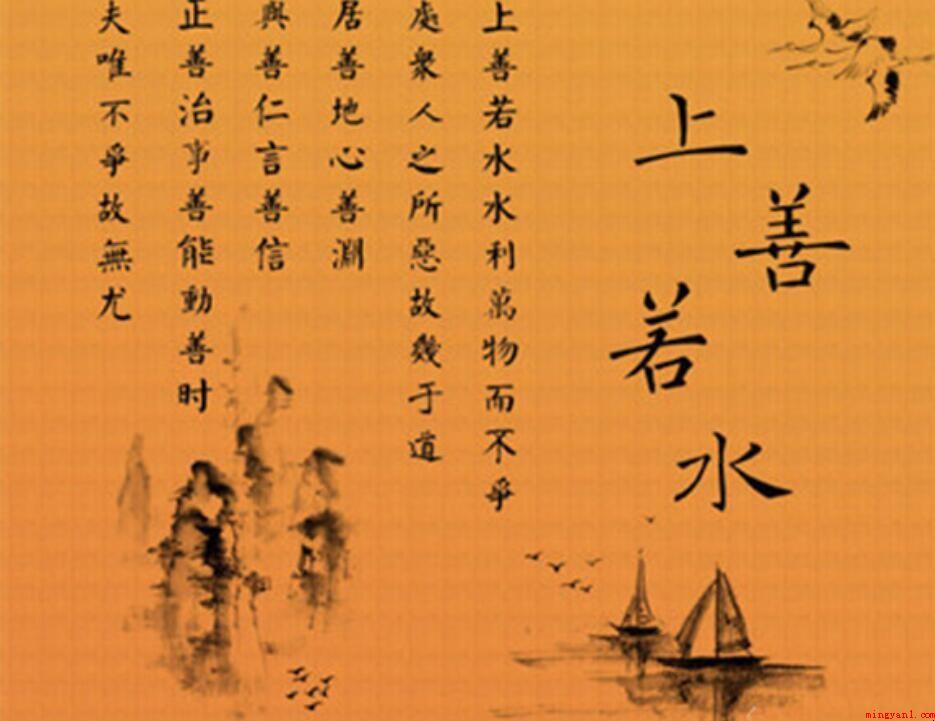 上善若水
上善若水水利萬物而不爭
處衆人之所惡故幾于道
居善地心善淵
與善仁言善信
正善治事善能動善时
夫唯不爭故無尤
mingyanl.com